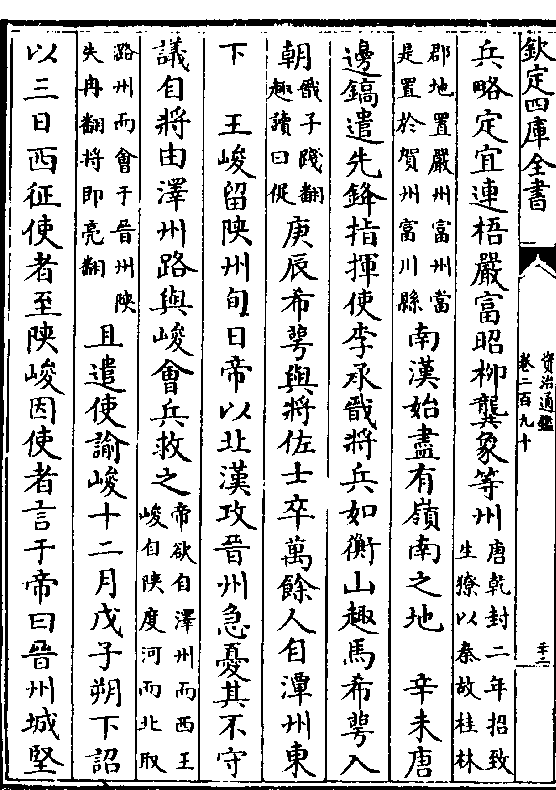 欽定四庫全書
資治通鑑
卷二百九十
兵略定宜連梧嚴富昭柳龔象等州唐乾封二年招致
生獠以秦故桂林
郡地置嚴州富州當
是置於賀州富川縣南漢始盡有嶺南之地　辛未唐
邊鎬遣先鋒指揮使李承戩將兵如衡山趣馬希萼入
朝戩子踐翻
趣讀曰促庚辰希萼與將佐士卒萬餘人自潭州東
下　王峻留陝州旬日帝以北漢攻晉州急憂其不守
議自將由澤州路與峻會兵救之帝欲自澤州而西王
峻自陝度河而北取
路州而會于晉州陝
失冉翻將即亮翻且遣使諭峻十二月戊子朔下詔
以三日西征使者至陝峻因使者言于帝曰晉州城堅